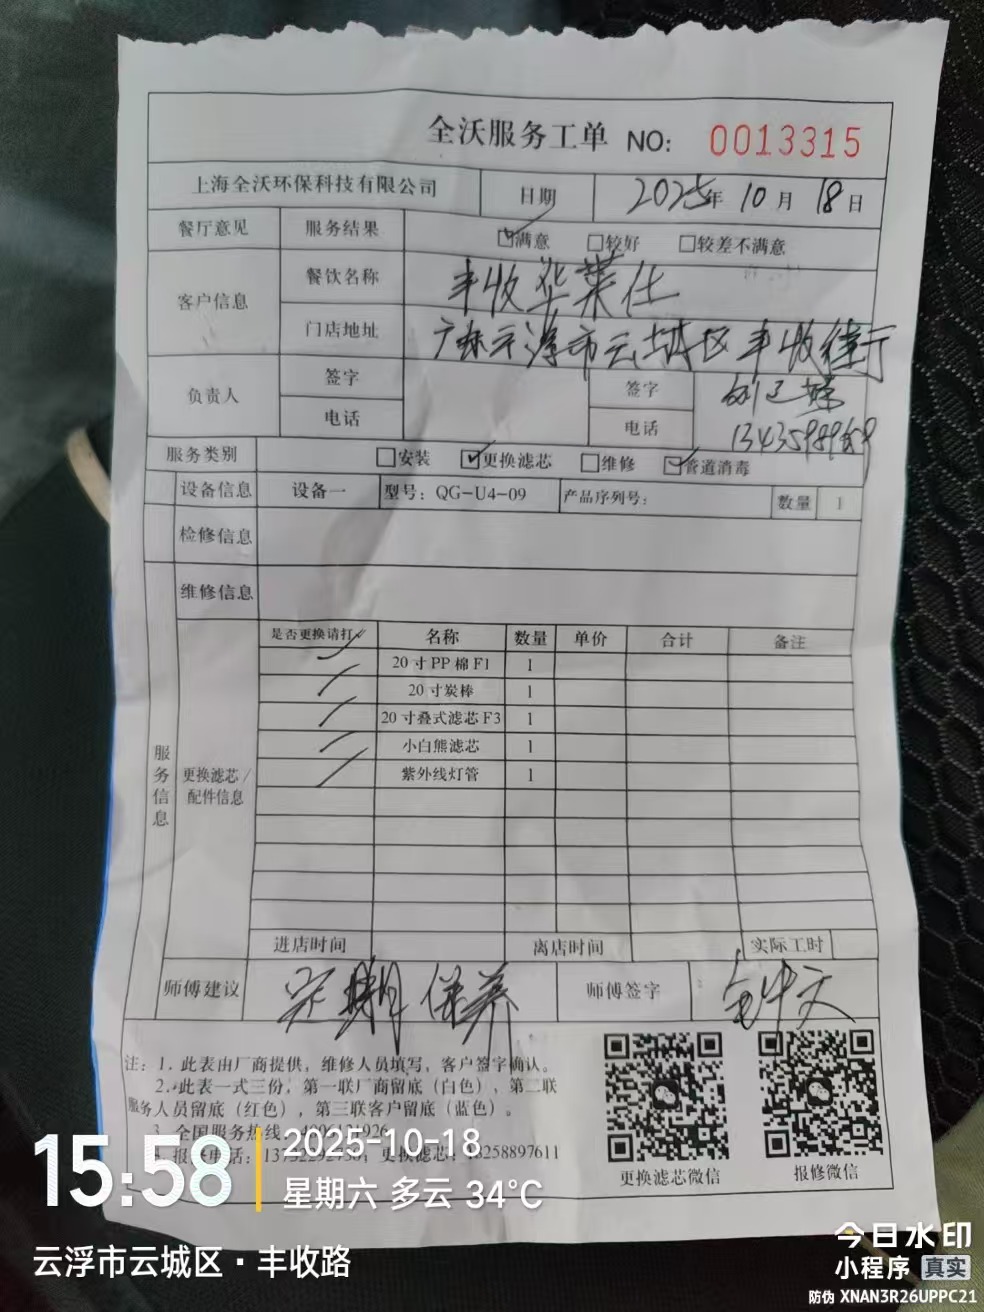 全沃服务工单 NO: 0013315
上海全沃环保科技有限公司 日期 2025年10月18日
餐厅意见 服务结果 ☑满意 □较好 □较差不满意
客户信息 餐饮名称 丰收华莱仕
门店地址 广东云浮市云城区丰收街
负责人 签字 签字
电话 电话
服务类别 □安装 ☑更换滤芯 □维修 ☑管道消毒
设备信息 设备一 型号：QG-U4-09 产品序列号： 数量 1
检修信息
维修信息
服务信息
更换滤芯/配件信息
是否更换请打✓ 名称 数量 单价 合计 备注
✓ 20寸PP棉F1 1
✓ 20寸炭棒 1
✓ 20寸叠式滤芯F3 1
✓ 小白熊滤芯 1
✓ 紫外线灯管 1
进店时间 离店时间 实际工时
师傅建议 定期保养 师傅签字
注：1. 此表由厂商提供，维修人员填写，客户签字确认。
2. 此表一式三份，第一联厂商留底（白色），第二联
服务人员留底（红色），第三联客户留底（蓝色）。
3. 全国服务热线
更换滤芯：18258897611
更换滤芯微信 报修微信
15:58
2025-10-18
星期六 多云 34°C
云浮市云城区·丰收路
今日水印
小程序 真实
防伪 XNAN3R26UPPC21